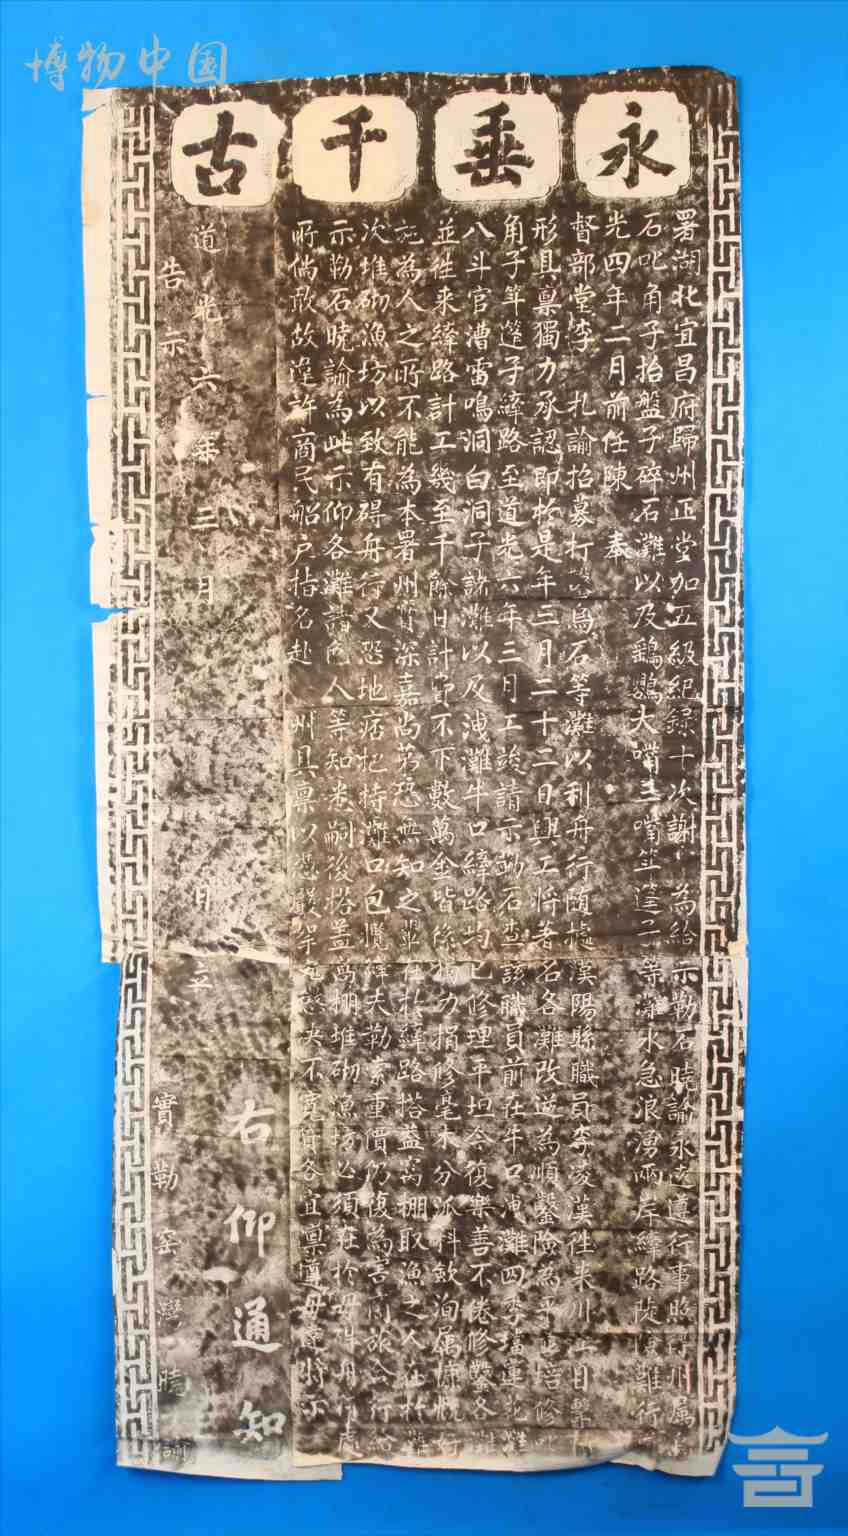 博物中国
永垂千古
署湖北宜昌府歸州正堂加五級紀錄十次謝 為給示勒石曉諭永遠遵行事照得州属
石吪角子抬盤子碎石灘以及鷄鸚大嘴三嘴笲筳子等灘水急浪湧兩岸縴路陡險難行
光四年二月前任陳 奉
督部堂李 札諭招募打鳥石等灘以利舟行随據漢陽縣職員李凌漢徃来川江目擊
形具禀獨力承認即於是年三月二十二日興工将著名各灘改逆為順鑿險為平並培修
角子笲筳子縴路至道光六年三月工竣請示勒石查該職員前在牛口洩灘四季
八斗官漕雷鳴洞白洞子諸灘以及洩灘牛口縴路均已修理平坦今復樂善不倦修鑿各灘
並徃来縴路計工幾至千餘日計費不下數萬金皆係獨力捐修毫未分派科歛洵属慷慨好
施為人之所不能為本署州實深嘉尚第恐無知之輩在於縴路搭蓋窩棚取漁之人在於灘
次堆砌漁坊以致有碍舟行又恐地痞把持灘口包攬縴夫勒索重價仍復為害商旅合行給
示勒石曉諭為此示仰各灘諸色人等知悉嗣後搭蓋窩棚堆砌漁坊必須在於毋碍舟行處
所倘敢故違許商民船户指名赴 州具禀以憑嚴拏究懲决不寬貸各宜禀遵毋違特示
右仰通知
道光六年三月 日立
告示 實勒窑灣曉諭